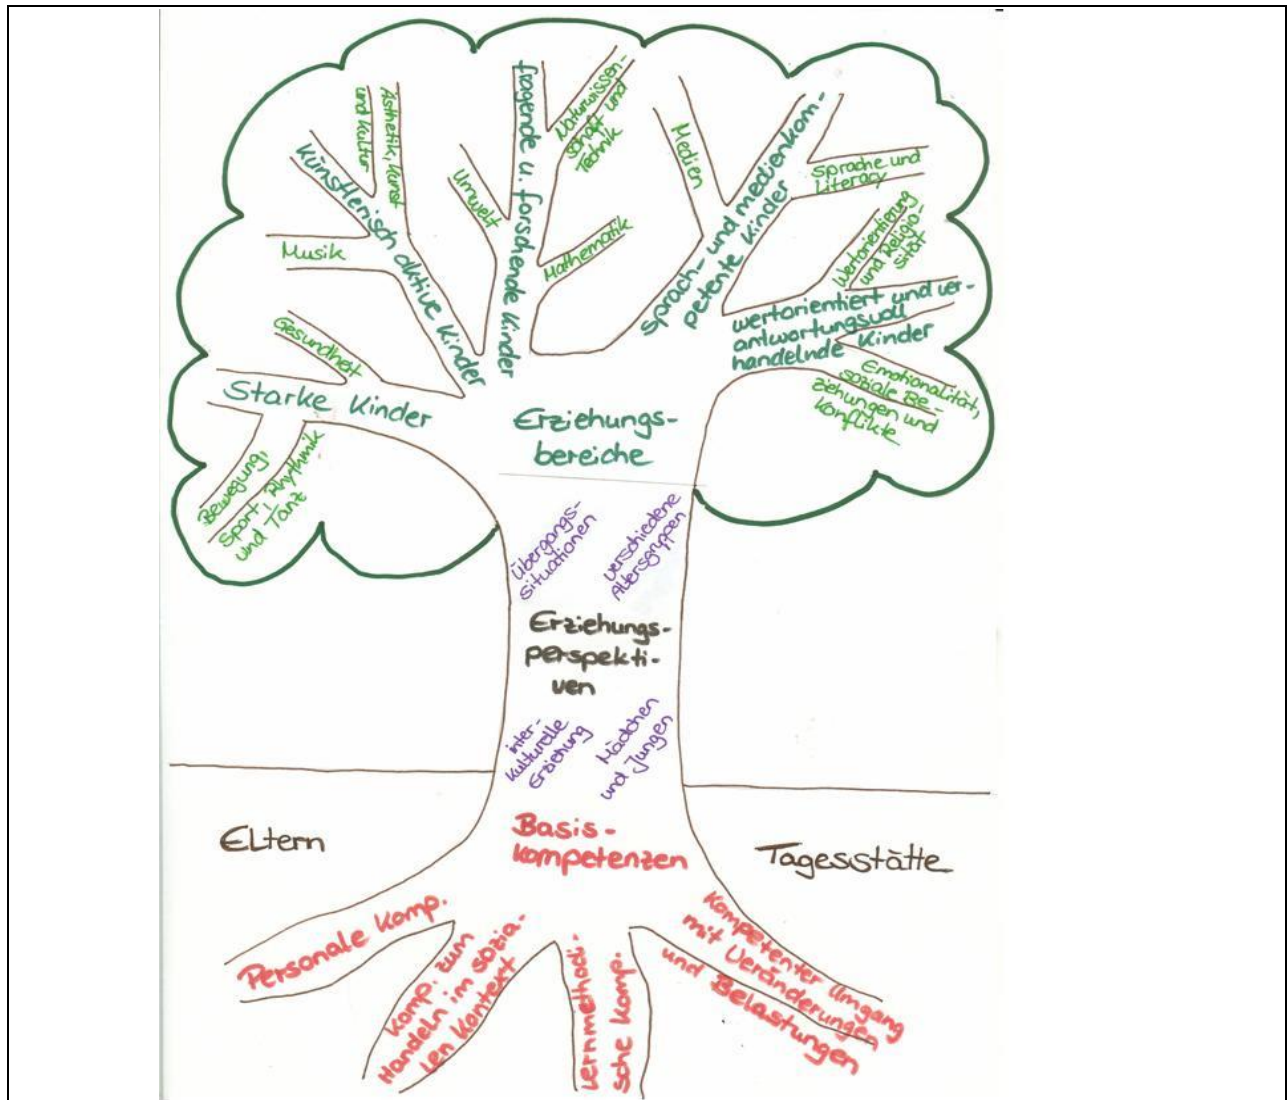 Ästhetik, Kunst
und Kultur
Künstlerisch aktive Kinder
Musik
Umwelt
fragende u. forschende Kinder
Naturwissen-
schaft und
Technik
Mathematik
Medien
sprach- und medienkom-
petente Kinder
Sprache und
Literacy
Wertorientierung
und Religio-
sität
wertorientiert und ver-
antwortungsvoll
handelnde Kinder
Emotionalität,
soziale Be-
ziehungen und
Konflikte
Gesundheit
Starke Kinder
Bewegung,
Sport, Rhythmik
und Tanz
Erziehungs-
bereiche
Übergangs-
situationen
verschiedene
Altersgruppen
Erziehungs-
perspekti-
ven
inter-
kulturelle
Erziehung
Mädchen
und Jungen
Eltern
Basis-
kompetenzen
Tagesstätte
Personale Komp.
Komp. zum
Handeln im sozia-
len Kontext
Lernmethodi-
sche Komp.
Kompetenter Umgang
mit Veränderungen
und Belastungen